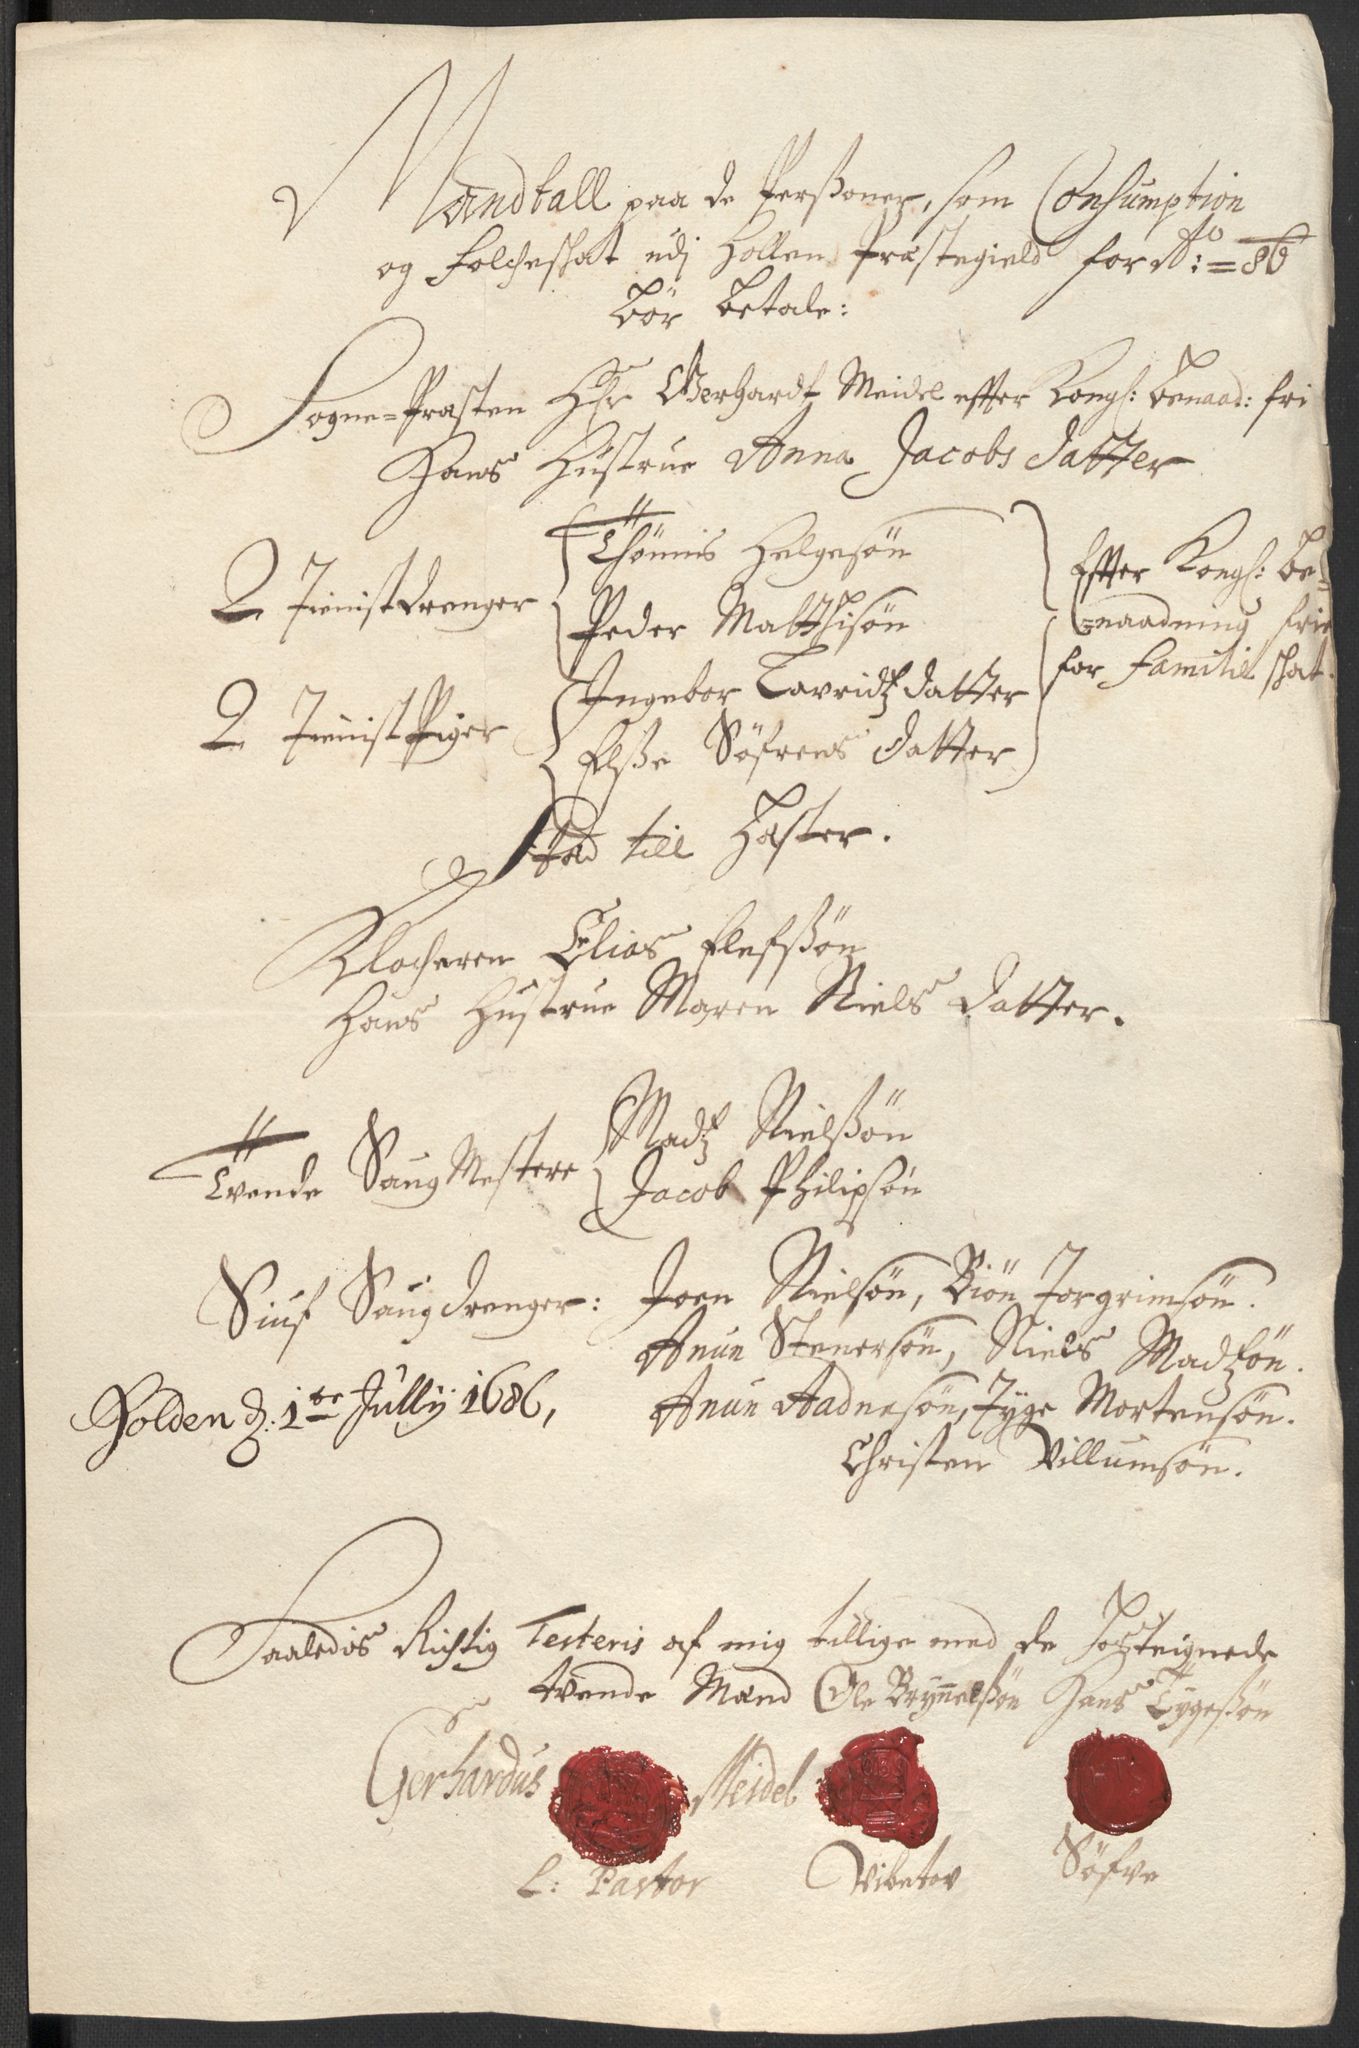 Mandtall paa de Perßoner, som Consumption
og Folcheskat udj Hollen Præstegield for Ao: = 86
bör betale:
Sogne=Præsten Hr Gerhardt Meidel effter Kongl: benaad: fri
Hans Hüstrue Anna Jacobs datter
2 Tienistdrenger
Thönnis Helgesön
Peder Matthisön
2 Tienist Piger
Ingebor Lavridtz datter
Elße Söfrens datter
Effter Kongl: be=
=naadning frie
for Familie skat.
Stad till Hæster.
Klocheren Elias Elefßön
Hans Hustrue Maren Niels datter.
Tvende Saug Mestere
Madtz Nielßön
Jacob Philipsön
Siuf Saugdrenger: Joen Nielsön, Biön Torgrimsön.
Anun Stenersön, Niels Madtzön.
Holden d: 1te Jullij 1686,
Anun Aadnesön, Tyge Mortensön.
Christen Villumsön.
Saaledis Richtig Testeris af mig tillige med de
tvende Mænd Ole Brynnelßön Hans Tygeßön
Gerhardus Meidel
L: Pastor
Vibetov
Söfve